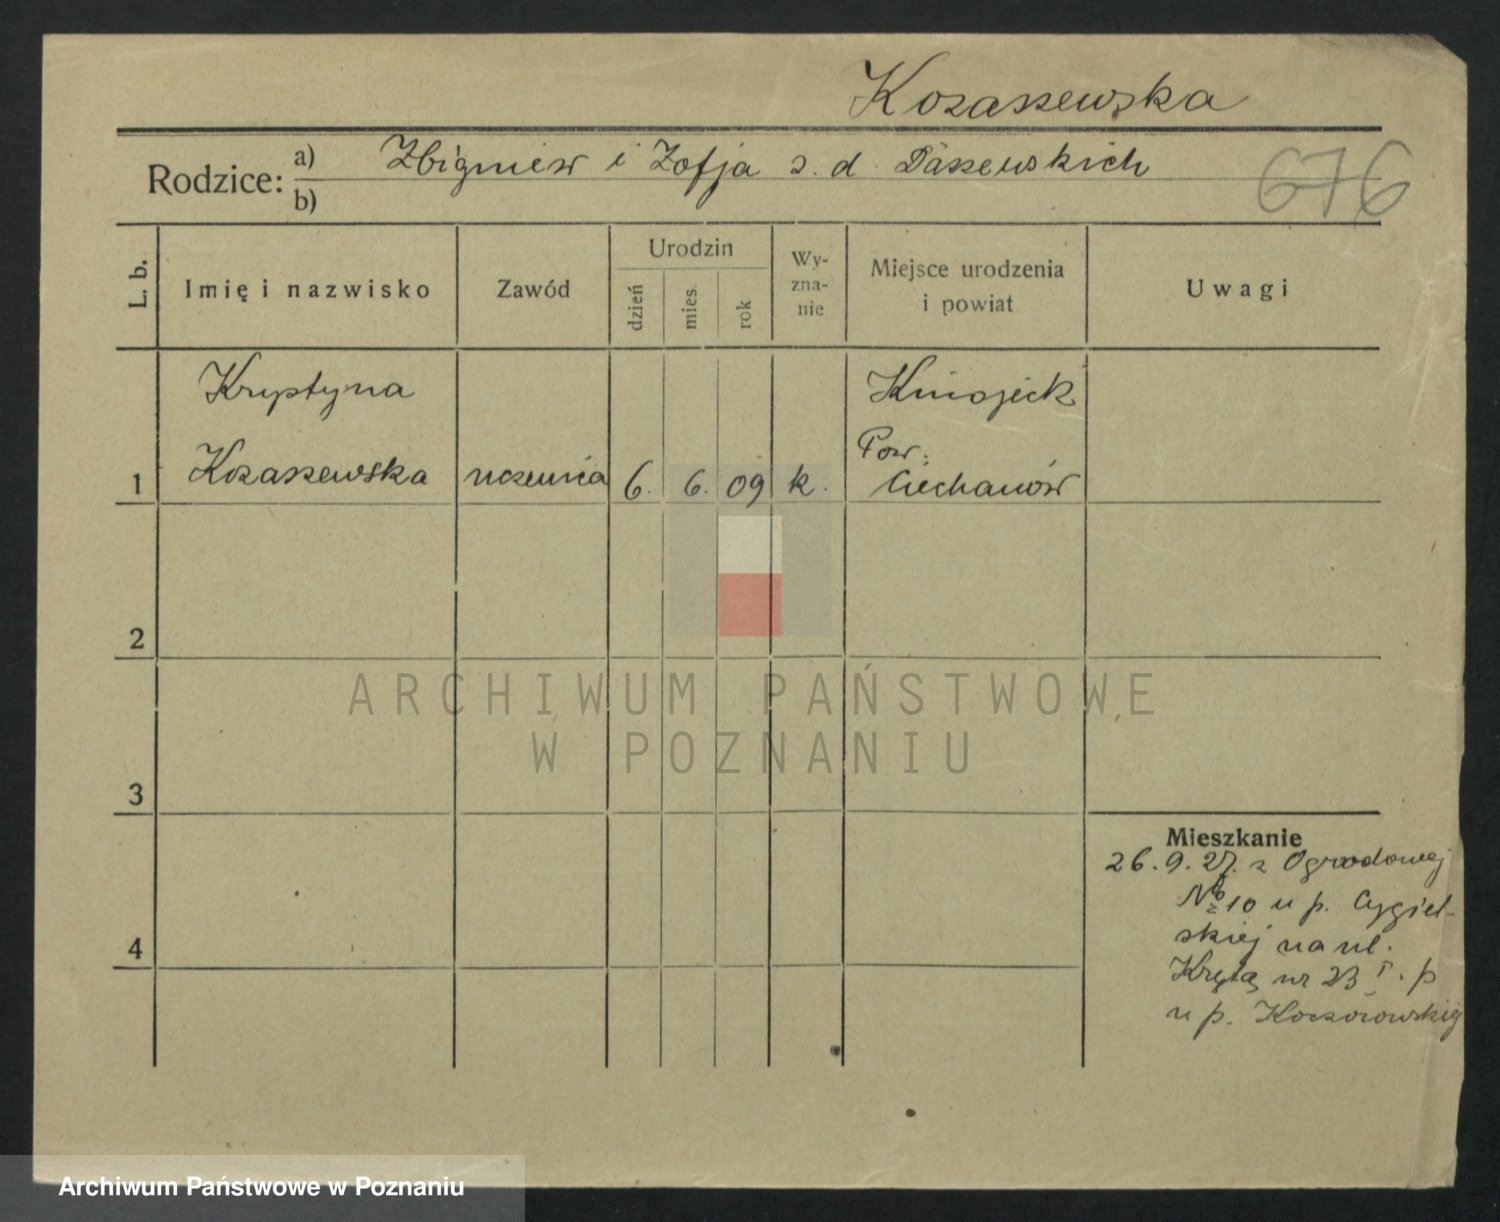 Kozaszewska
Rodzice: a) Zbigniew i Zofja z. d. Daszewskich
b)
676
L. b. Imię i nazwisko Zawód Urodzin dzień mies. rok Wy- zna- nie Miejsce urodzenia i powiat Uwagi
Krystyna Kmiojeck
Pow:
1 Kozaszewska uczenica 6. 6. 09 k. Ciechanów
2
ARCHIWUM PAŃSTWOWE
W POZNANIU
3
Mieszkanie
26. 9. 27. z Ogrodowej
№ 10 u p. Cygiel-
skiej na ul.
4
Krętą nr 23 I. p
u p. Koczorowskiej
Archiwum Państwowe w Poznaniu